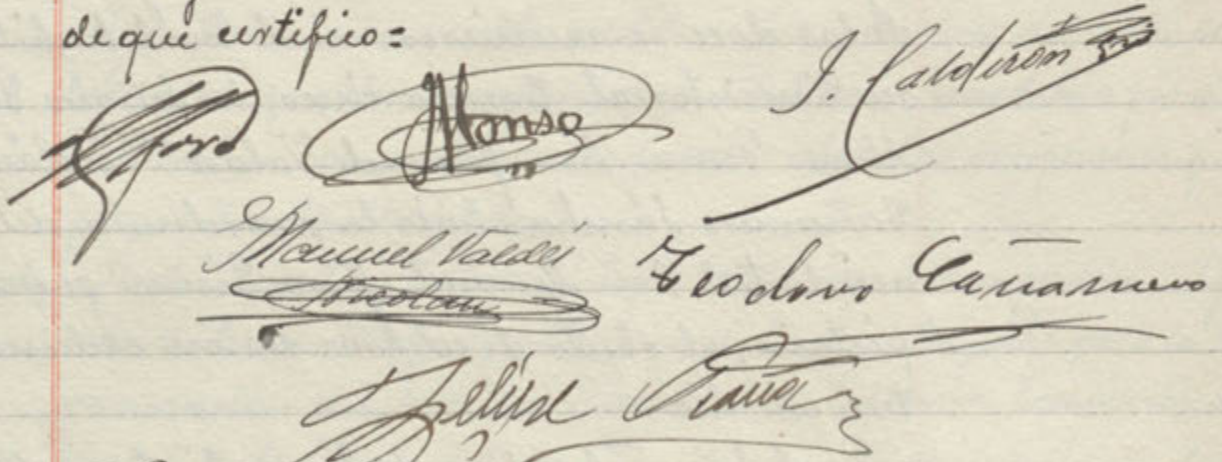 de que certifico=
Alonso
J. Calderón
Manuel Valdés
Nicolau
Teodoro Cañasnuevo
Felipe Viaña